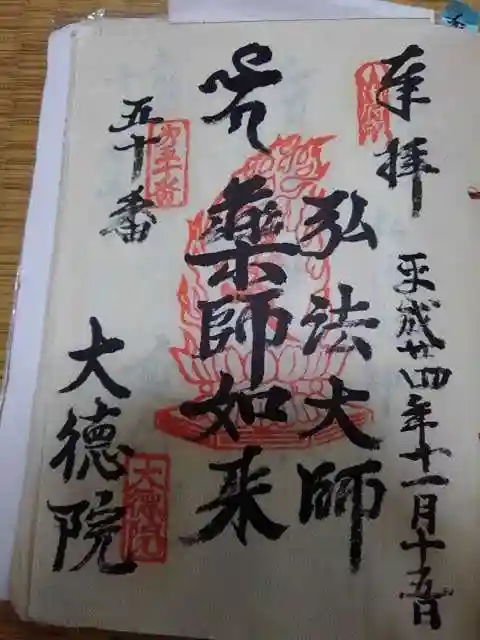 奉拝
平成廿四年十一月十五日
弘法大師
薬師如来
五十番
第五十番
大徳院
大徳院